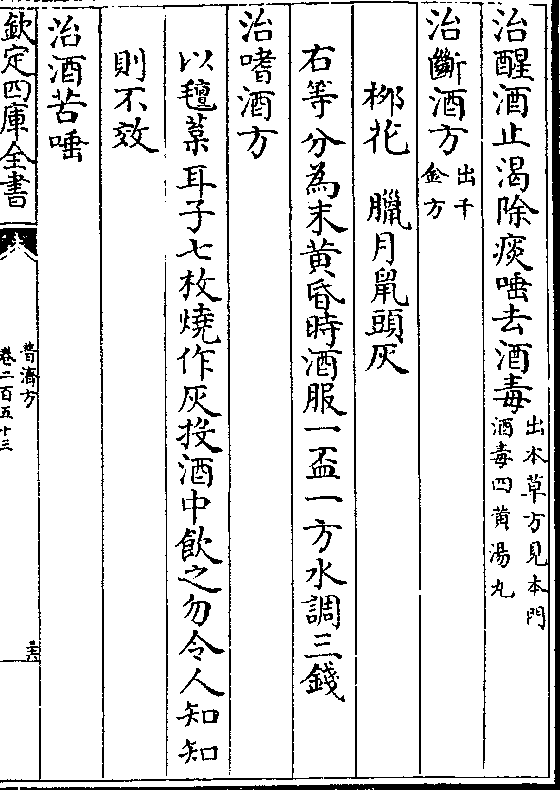 治醒酒止渴除痰唾去酒毒出本草方見本門酒毒四黄湯丸
治斷酒方出千金方
柳花　臘月䑕頭灰
右等分為末黄昏時酒服一盃一方水調三錢
治嗜酒方
以氊菜耳子七枚燒作灰投酒中飲之勿令人知知
則不效
治酒苦唾
欽定四庫全書
普濟方
卷二百五十三